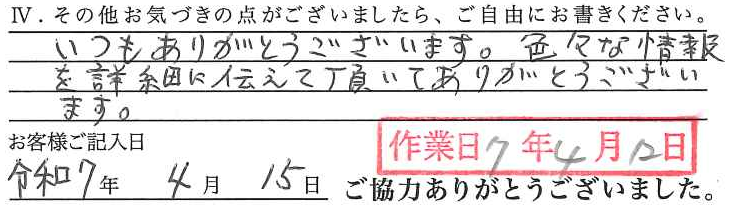 Ⅳ．その他お気づきの点がございましたら、ご自由にお書きください。
いつもありがとうございます。色々な情報
を詳細に伝えて頂いてありがとうござい
ます。
お客様ご記入日
作業日7年4月12日
令和7年 4月 15日 ご協力ありがとうございました。